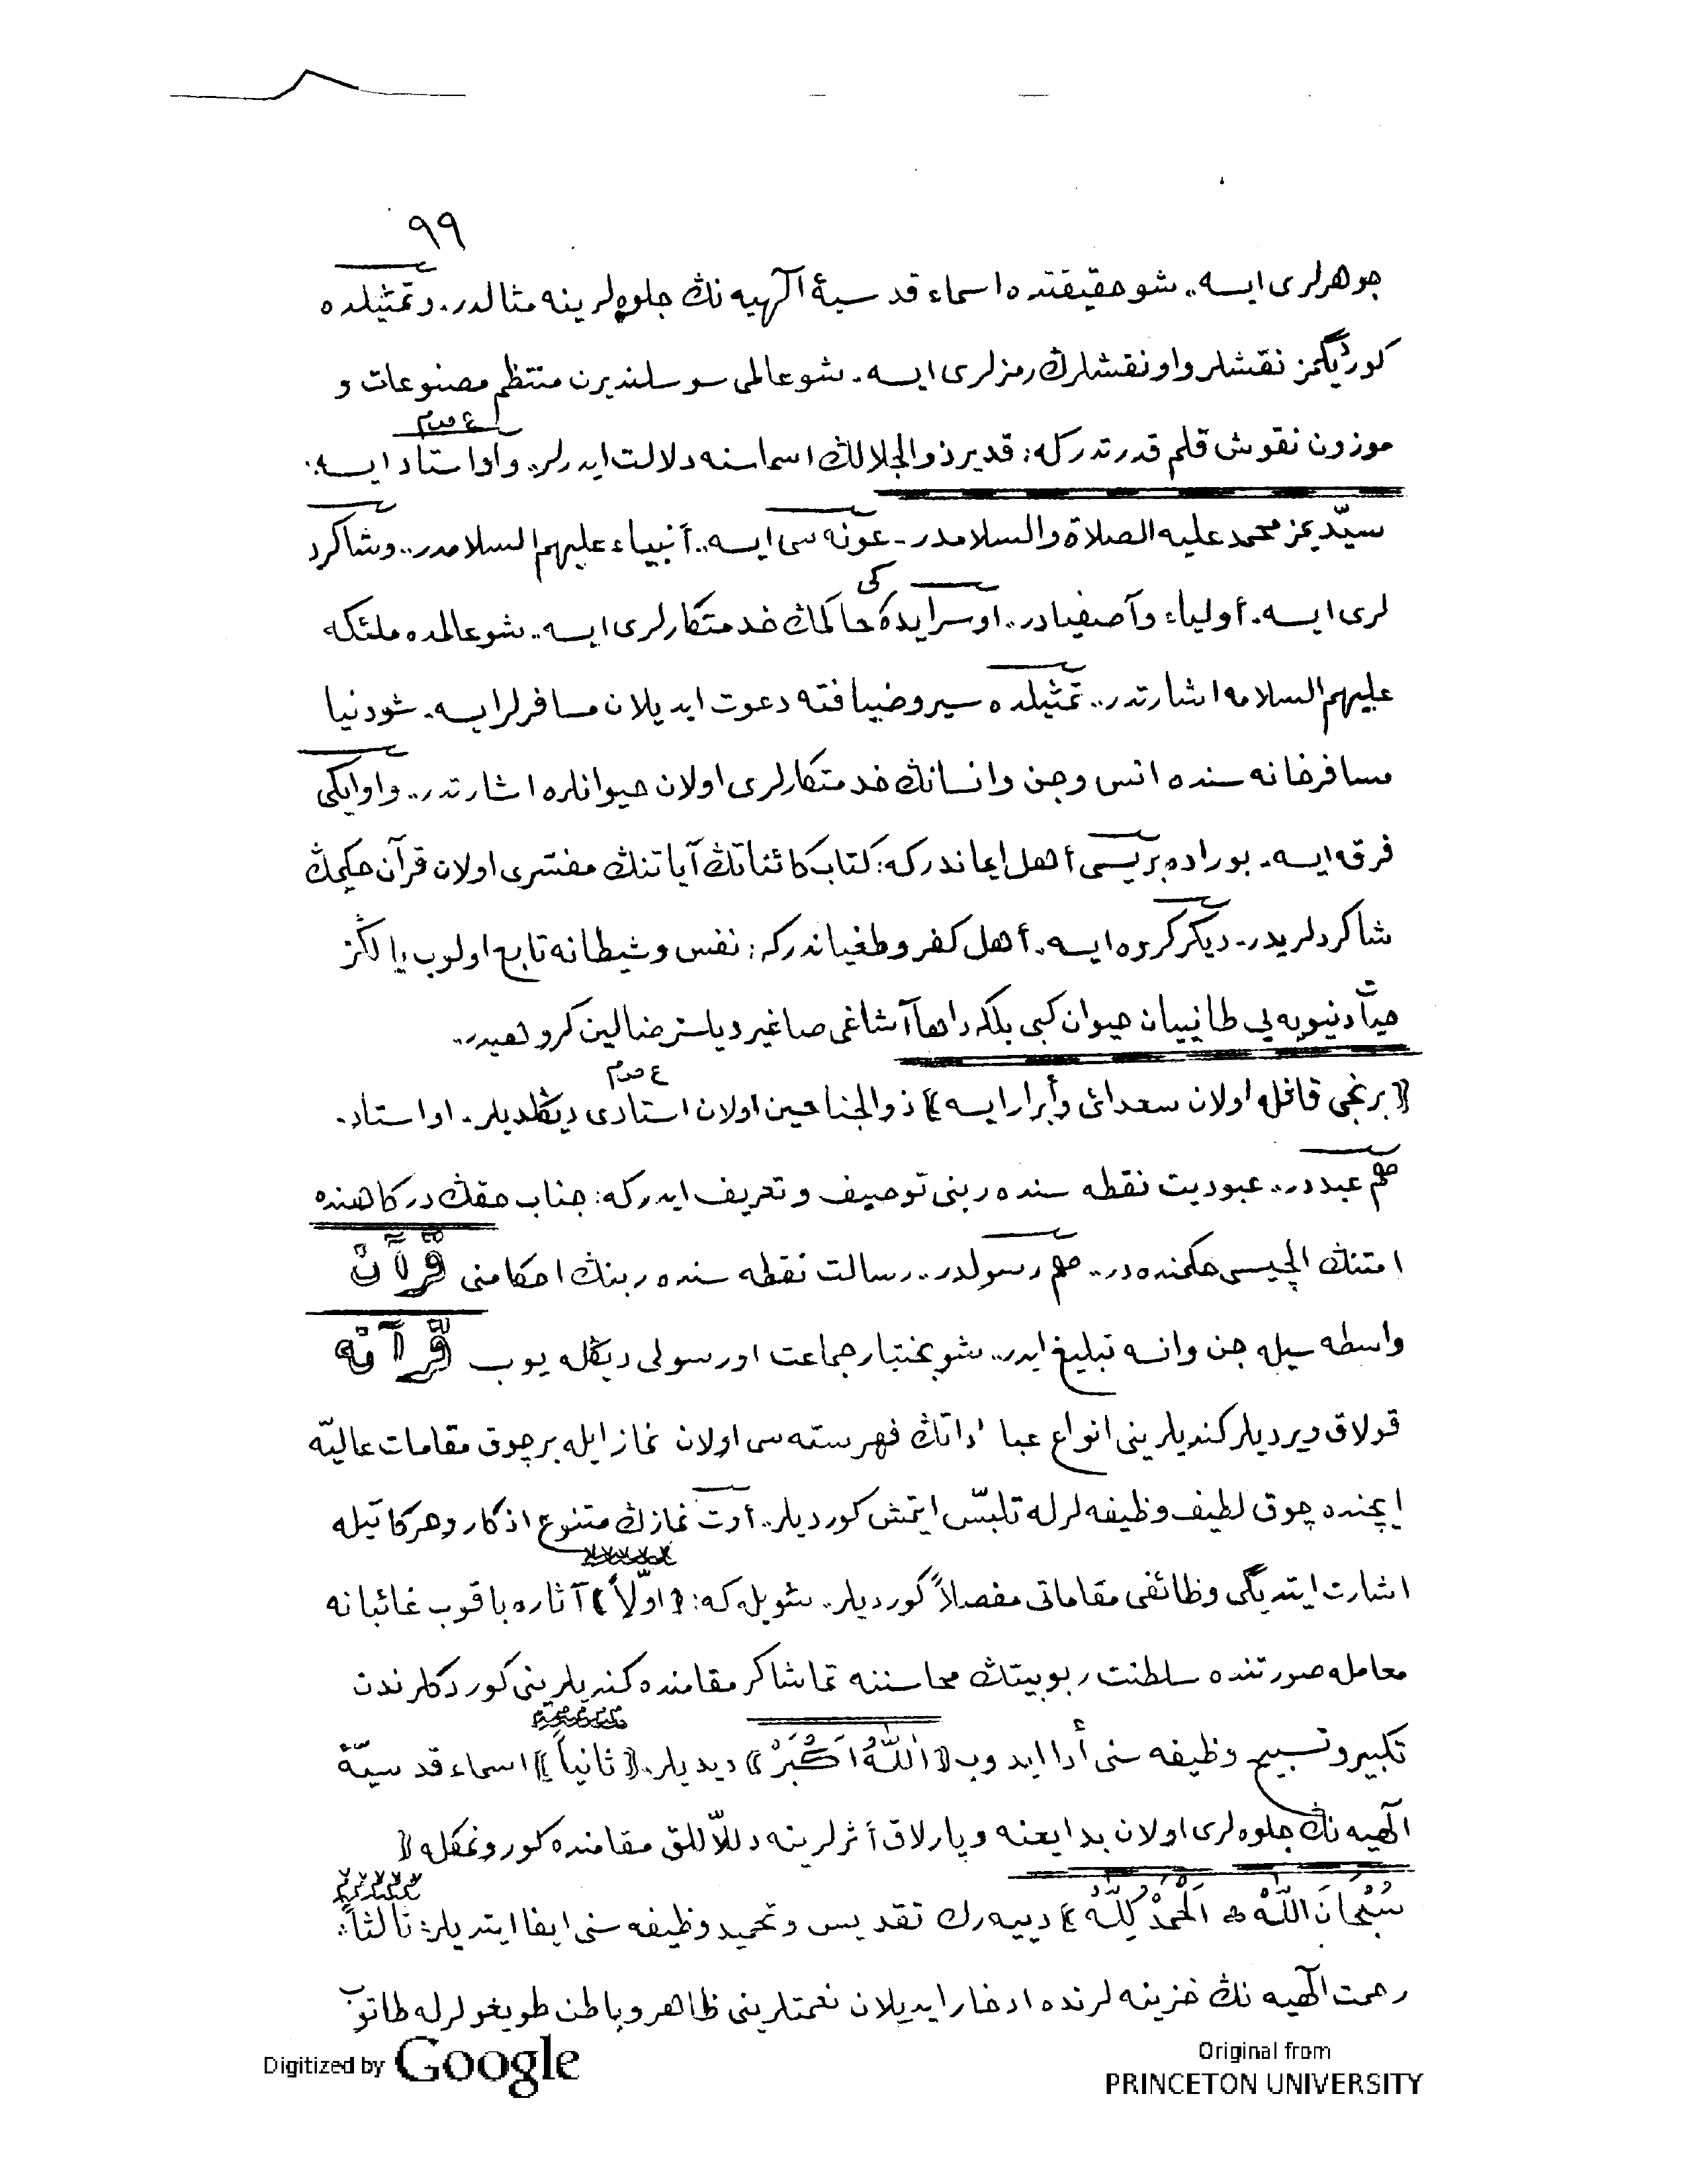 ٩٩
جوهرلری ایسه.. شو حقیقتده اسماء قدسیۀ آلهیه نڭ جلوه لرینه مثالدر. و تمثیلده
کوردیگمز نقشلر و او نقشلرڭ رمزلری ایسه. شو عالمی سوسلندیرن منتظم مصنوعات و
موزون نقوش قلم قدرتدرکه: قدیر ذوالجلالڭ اسماسنه دلالت ایدرلر. و او استاد ایسه:
ع ص م
سیّدیمز محمد علیه الصلاة والسلامدر - عونه سی ایسه.. أنبیاء علیهم السلامدر.. و شاکرد
لری ایسه. أولیاء و آصفیادر.. او سرایده کی حاکمڭ خدمتکارلری ایسه.. شو عالمده ملئکه
علیهم السلامه اشارتدر.. تمثیلده سیر و ضیافته دعوت ایدیلان مسافرلر ایسه. شو دنیا
مسافرخانه سنده انس و جن و انسانڭ خدمتکارلری اولان حیوانلره اشارتدر.. و او ایکی
فرقه ایسه. بوراده بریسی أهل ایماندرکه: کتاب کائناتڭ آیاتنڭ مفسّری اولان قرآن حکیمڭ
شاکردلریدر. دیکر کروه ایسه. أهل کفر و طغیاندرکه: نفس و شیطانه تابع اولوب یالڭز
حیات دنیویه یی طانییان حیوان کبی بلکه داها آشاغی صاغیر دیلسز ضالین کروهیدر..
﴿برنجی قافله اولان سعدائ و أبرار ایسه﴾ ذوالجناحین اولان استادی دیڭلدیلر. او استاد.
ع ص م
هم عبددر.. عبودیت نقطه سنده ربنی توصیف و تعریف ایدرکه: جناب حقڭ درکاهنده
امتنڭ ایلچیسی حکمنده در.. هم رسولدر.. رسالت نقطه سنده ربنڭ احکامنی قُرْآنْ
واسطه سیله جن و انسه تبلیغ ایدر.. شو بختیار جماعت او رسولی دیڭله یوب قُرْآنه
قولاق ویردیلر کندیلرینی انواع عباداتڭ فهرسته سی اولان نماز ایله بر چوق مقامات عالیّه
ایچنده چوق لطیف وظیفه لرله تلبّس ایتمش کوردیلر.. أوت نمازڭ متنوع اذکار و حرکاتیله
اشارت ایتدیگی وظائفی مقاماتی مفصلاً کوردیلر. شویله که: ﴿اوّلاً﴾ آثاره باقوب غائبانه
معامله صورتنده سلطنت ربوبیتڭ محاسننه تماشاکر مقامنده کندیلرینی کوردکلرندن
تکبیر و تسبیح وظیفه سنی أدا ایدوب ﴿اَللّٰهُ اَكْبَرْ﴾ دیدیلر. ﴿ثانیاً﴾ اسماء قدسیّۀ
آلهیه نڭ جلوه لری اولان بدایعنه و پارلاق أثرلرینه دلّاللق مقامنده کورونمکله ﴿
سُبْحَانَ اللّٰهْ ✽ اَلْحَمْدُ لِلّٰهْ﴾ دییه رك تقدیس و تحمید وظیفه سنی ایفا ایتدیلر: ثالثاً:
رحمت آلهیه نڭ خزینه لرنده ادخار ایدیلان نعمتلرینی ظاهر و باطن طویغولرله طاتوب
Digitized by Google
Original from
PRINCETON UNIVERSITY